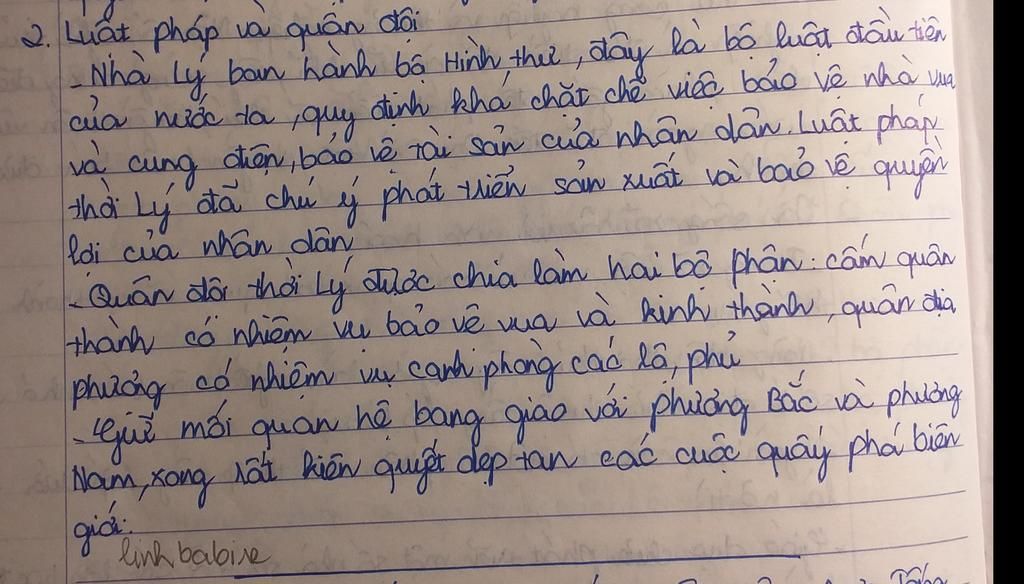 2. Luật pháp và quân đội
- Nhà Lý ban hành bộ Hình thư, đây là bộ luật đầu tiên
của nước ta, quy định khá chặt chẽ việc bảo vệ nhà vua
và cung điện, bảo vệ tài sản của nhân dân. Luật pháp
thời Lý đã chú ý phát triển sản xuất và bảo vệ quyền
lợi của nhân dân
- Quân đội thời Lý được chia làm hai bộ phận: cấm quân
thành có nhiệm vụ bảo vệ vua và kinh thành, quân địa
phương có nhiệm vụ canh phòng các lộ, phủ
- Giữ mối quan hệ bang giao với phương Bắc và phương
Nam, xong rất kiên quyết dẹp tan các cuộc quấy phá biên
giới.
linhbabine